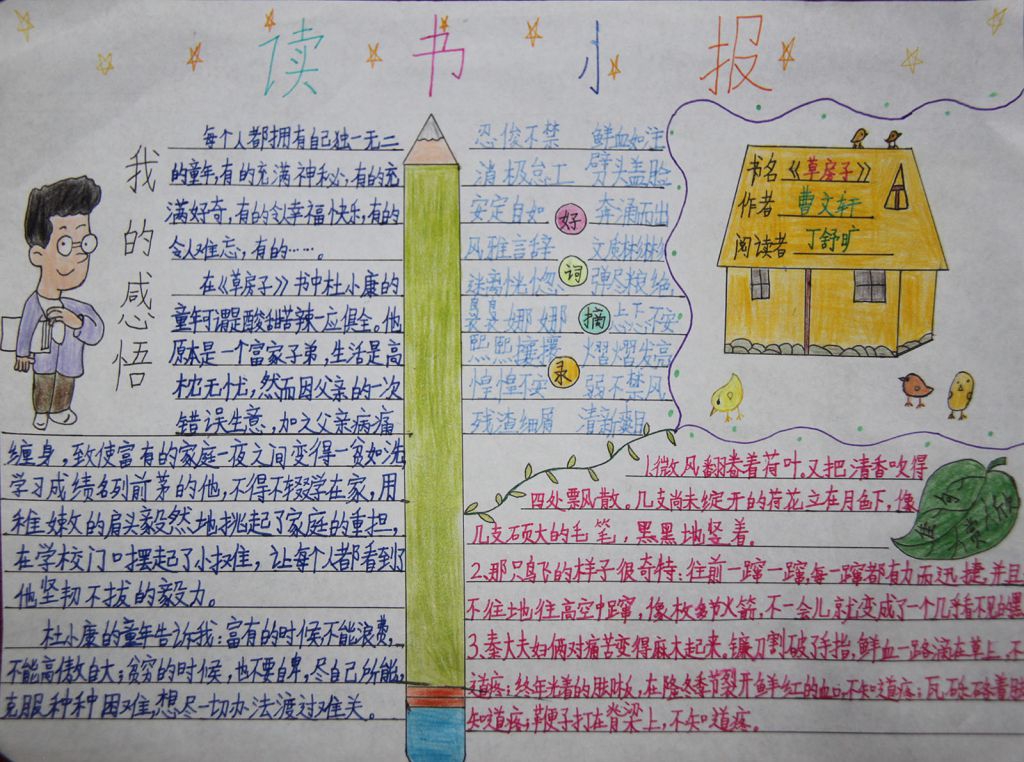 读书小报
我的感悟
每个人都拥有自己独一无二
的童年,有的充满神秘,有的充
满好奇,有的令人幸福快乐,有的
令人难忘,有的……。
在《草房子》书中杜小康的
童年可谓是酸甜苦辣一应俱全。他
原本是一个富家子弟,生活是高
枕无忧,然而因父亲的一次
错误生意,加之父亲病痛
缠身,致使富有的家庭一夜之间变得一贫如洗
学习成绩名列前茅的他,不得不辍学在家,用
稚嫩的肩头毅然地挑起了家庭的重担,
在学校门口摆起了小摊,让每个人都看到了
他坚韧不拔的毅力。
杜小康的童年告诉我:富有的时候不能浪费,
不能高傲自大;贫穷的时候,也不要自卑,尽自己所能,
克服种种困难,想尽一切办法渡过难关。
好词摘录
忍俊不禁 鲜血如注
消极怠工 劈头盖脸
安定自如 奔涌而出
风雅言辞 文质彬彬
迷离恍惚 弹尽粮绝
袅袅娜娜 忐忑不安
熙熙攘攘 熠熠发亮
惶惶不安 弱不禁风
残渣细屑 清新夺目
书名《草房子》
作者 曹文轩
阅读者 丁舒旷
1.微风翻卷着荷叶。又把清香吹得
四处票风散。几支尚未绽开的荷花立在月色下,像
几支硕大的毛笔,黑黑地竖着。
2.那只鸟飞的样子很奇特:往前一蹿一蹿,每一蹿都有力而迅捷,并且
不住地往高空中蹿,像枚多节火箭,不一会儿就变成了一个几乎看不见的黑
3.秦大夫妇俩对痛苦变得麻木起来。镰刀割破了手指,鲜血一路滴在草上,不
道疼;终年光着的脚板,在隆冬季节裂开鲜红的血口,不知道疼;瓦砾硌着脚
知道疼;鞭子打在脊梁上,不知道疼。